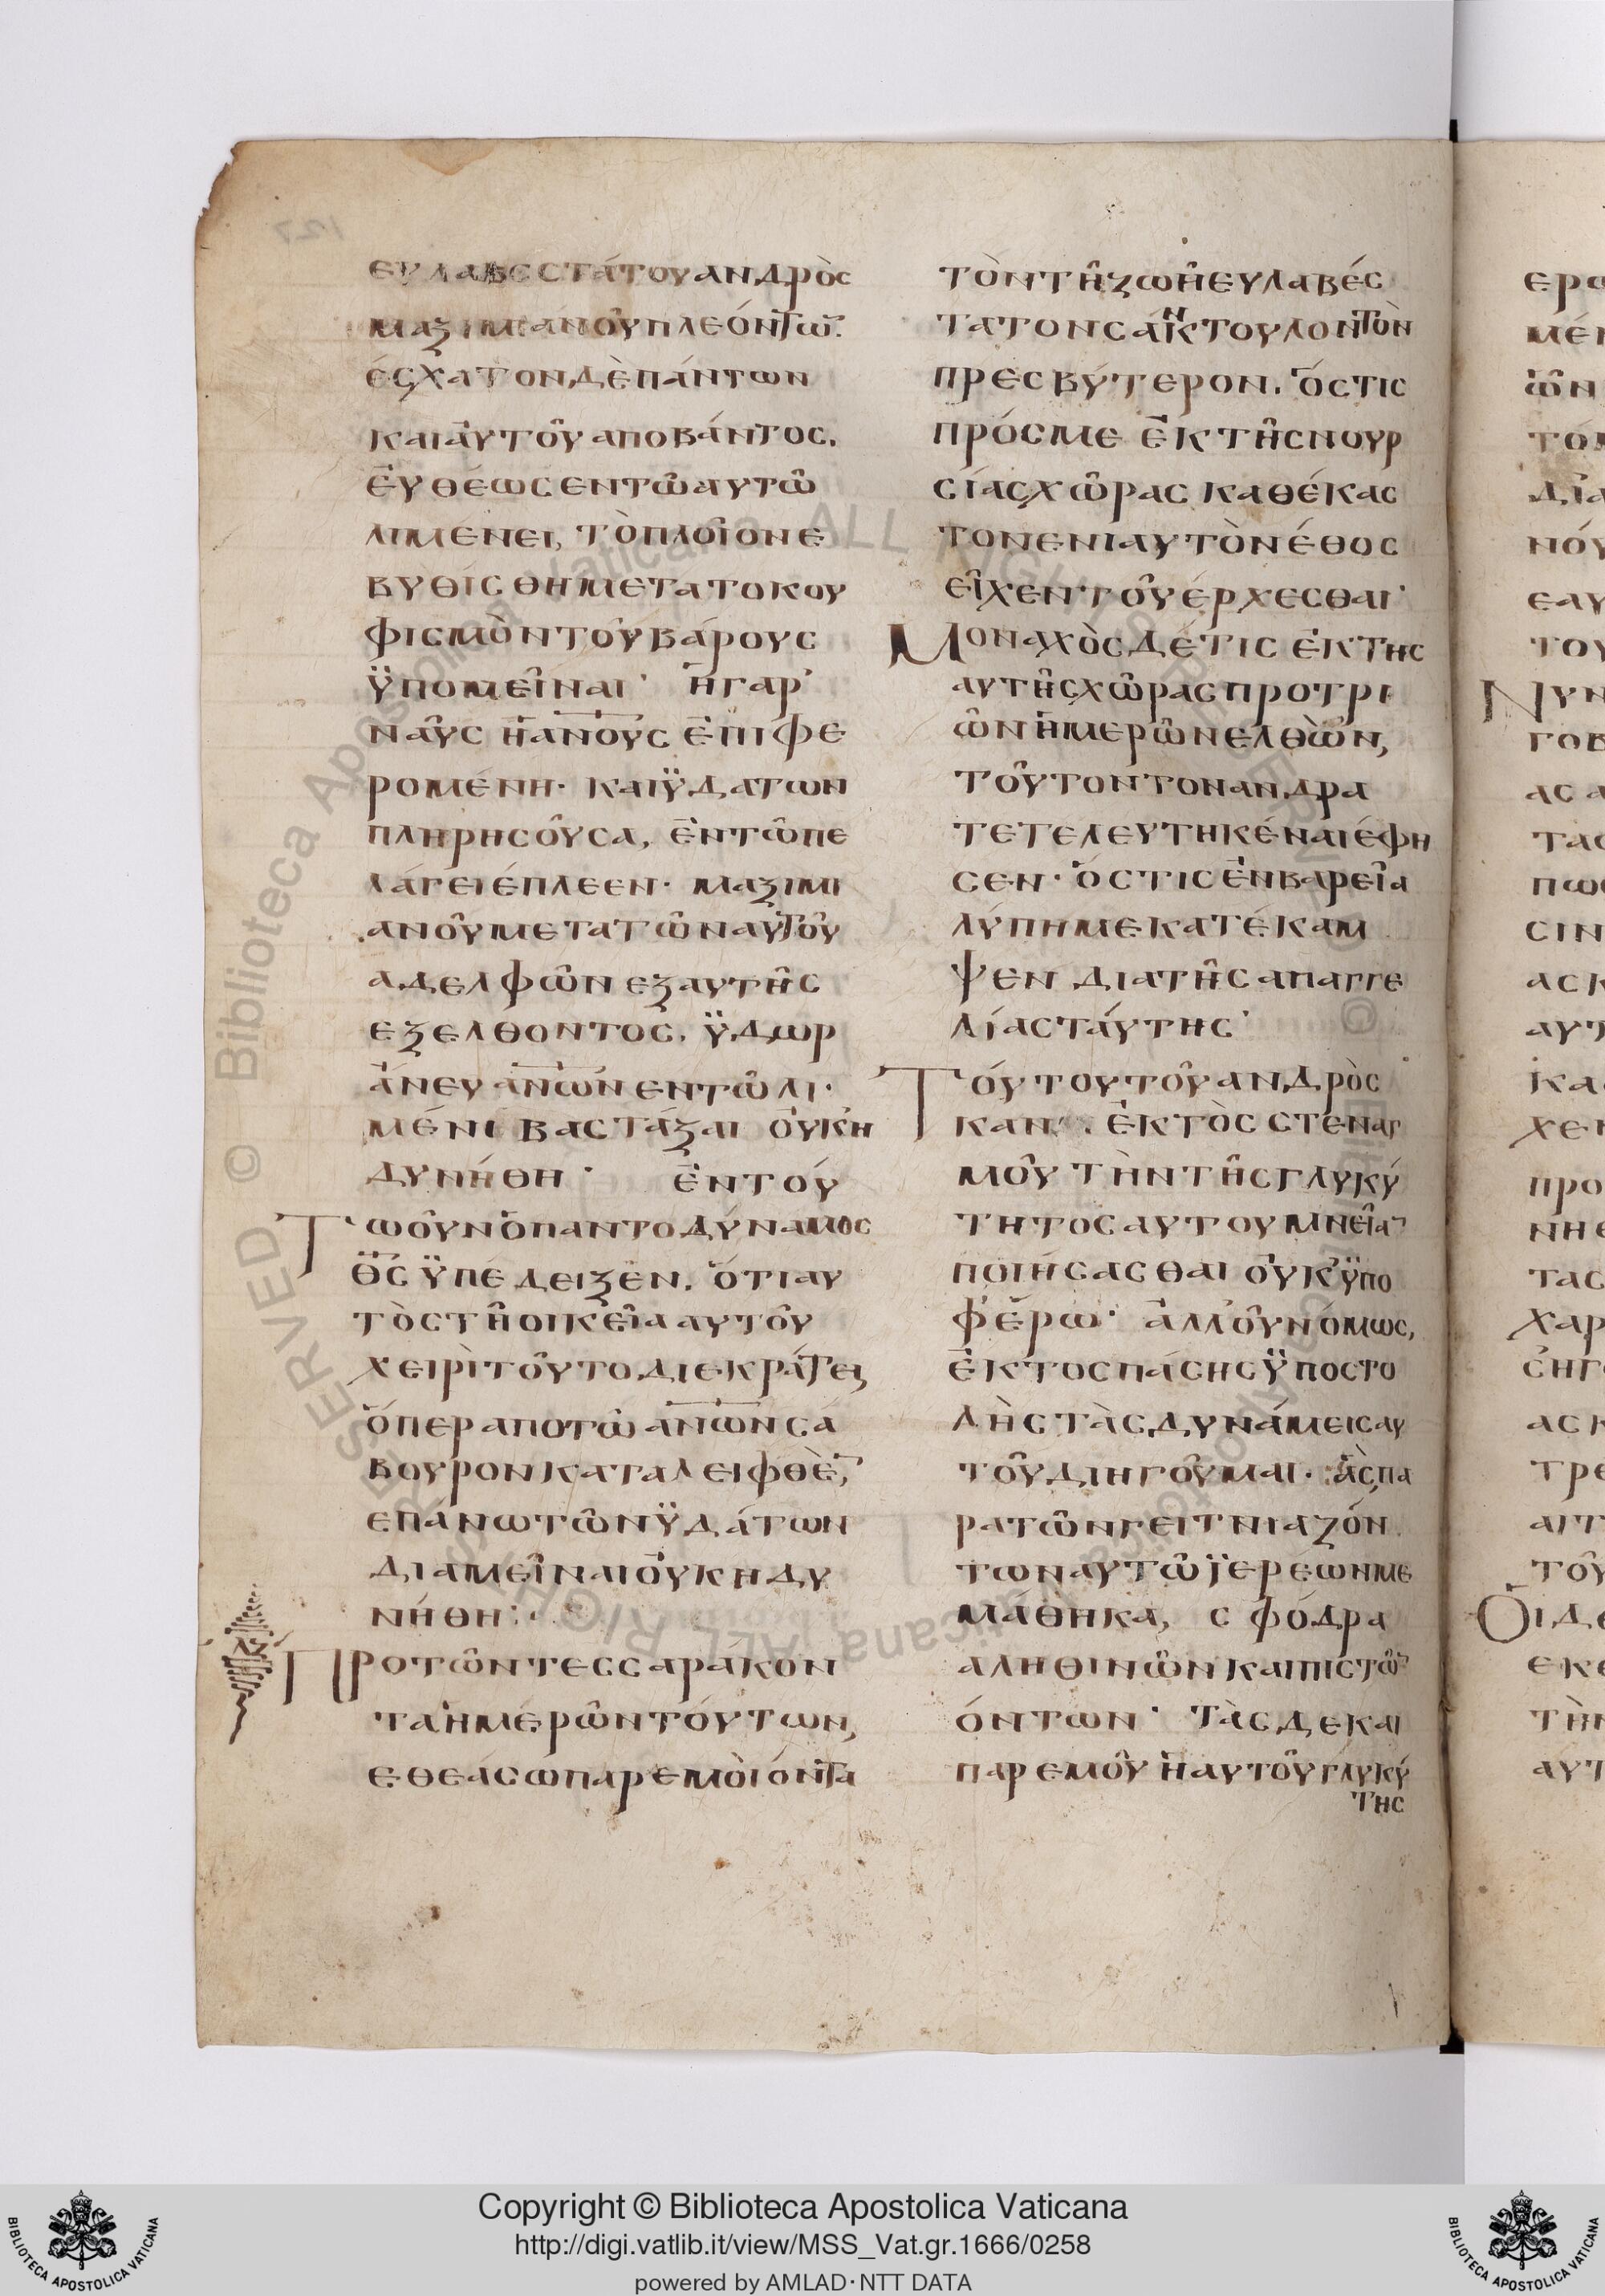 ευλαβεστάτου ανδρὸς
μαξιμιανοῦ πλεόντω̅.
έσχατον δὲ πάντων
και αὐτοῦ αποβάντος.
ἐυθέως εν τῶ αυτῶ
λιμένει, τὸ πλοῖον ε
βυθίσθη μετα τὸ κου
φισμὸν τοῦ βάρους
ϋπομεῖναι· ἡ γαρ
ναῦς ἡ ανο̅ύς ἐπιφε
ρομένη· και ϋδατων
πλήρης οῦσα, ἐν τῶ πε
λάγει έπλεεν· μαξιμι
ανοῦ μετα τῶν αυτοῦ
αδελφῶν εξ αυτῆς
εξελθοντος, ϋδωρ
άνευ αν̅ών εν τῶ λι·
μένι βαστάξαι ουκ η
δυνήθη· ἐν τού
τω οῦν ὁ παντοδύναμος
θ̅ς ϋπέδειξεν. ὅτι αυ
τὸς τῆ οικεῖα αυτοῦ
χειρὶ τοῦτο διεκράτει
ὅπερ απο τῶ αν̅ών σά
βουρον καταλειφθὲ̅,
επάνω τῶν ϋδάτων
διαμεῖναι οὐκ ηδυ
νήθη:
Προ τῶν τεσσαράκον
τα ἡμερῶν τούτων,
εθεάσω παρ εμὸι όντα
τὸν τῆ ζωῆ ευλαβέσ
τατον σάγκτουλον τὸν
πρεσβύτερον. ὅστις
πρός με ἐκ τῆς νουρ
σίας χῶρας καθέκασ
τον ενιαυτὸν έθος
εῖχεν τοῦ έρχεσθαι·
Μοναχὸς δέ τις ἐκ της
αυτῆς χῶρας προ τρι
ῶν ἡμερῶν ελθών,
τοῦτον τον ανδρα
τετελευτηκέναι έφη
σεν· ὅστις ἐν βαρεῖα
λύπη με κατέκαμ
ψεν δια τῆς απαγγε
λίας ταύτης·
Τούτου τοῦ ανδρὸς
καν . ἐκτὸς στεναγ
μοῦ τὴν τῆς γλυκύ
τητος αυτου μνεῖα̅
ποιήσασθαι οὐκ ϋπο
φέρω· ἀλλ οῦν όμως,
ἐκτος πάσης ϋποστο
λῆς τὰς δυνάμεις αυ
τοῦ διηγοῦμαι· ἃς πα
ρα τῶν γειτνιαζόν
των αυτῶ ϊερέων με
μάθηκα, σφόδρα
αληθινῶν και πιστῶ̅
όντων· Τὰς δε και
παρ εμοῦ ἡ αυτοῦ γλυκύ
της
127
ALL RIGHTS RESERVED © Biblioteca Apostolica Vaticana
Copyright © Biblioteca Apostolica Vaticana
http://digi.vatlib.it/view/MSS_Vat.gr.1666/0258
powered by AMLAD·NTT DATA
BIBLIOTECA APOSTOLICA VATICANA
BIBLIOTECA APOSTOLICA VATICANA